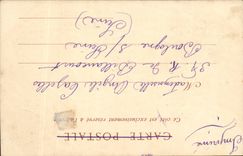 CARTE POSTALE
Ce côté est exclusivement réservé à l'adresse
Mademoiselle Angèle
39 R. de Billancourt
Boulogne s/ Seine
(Seine)
Imprimé